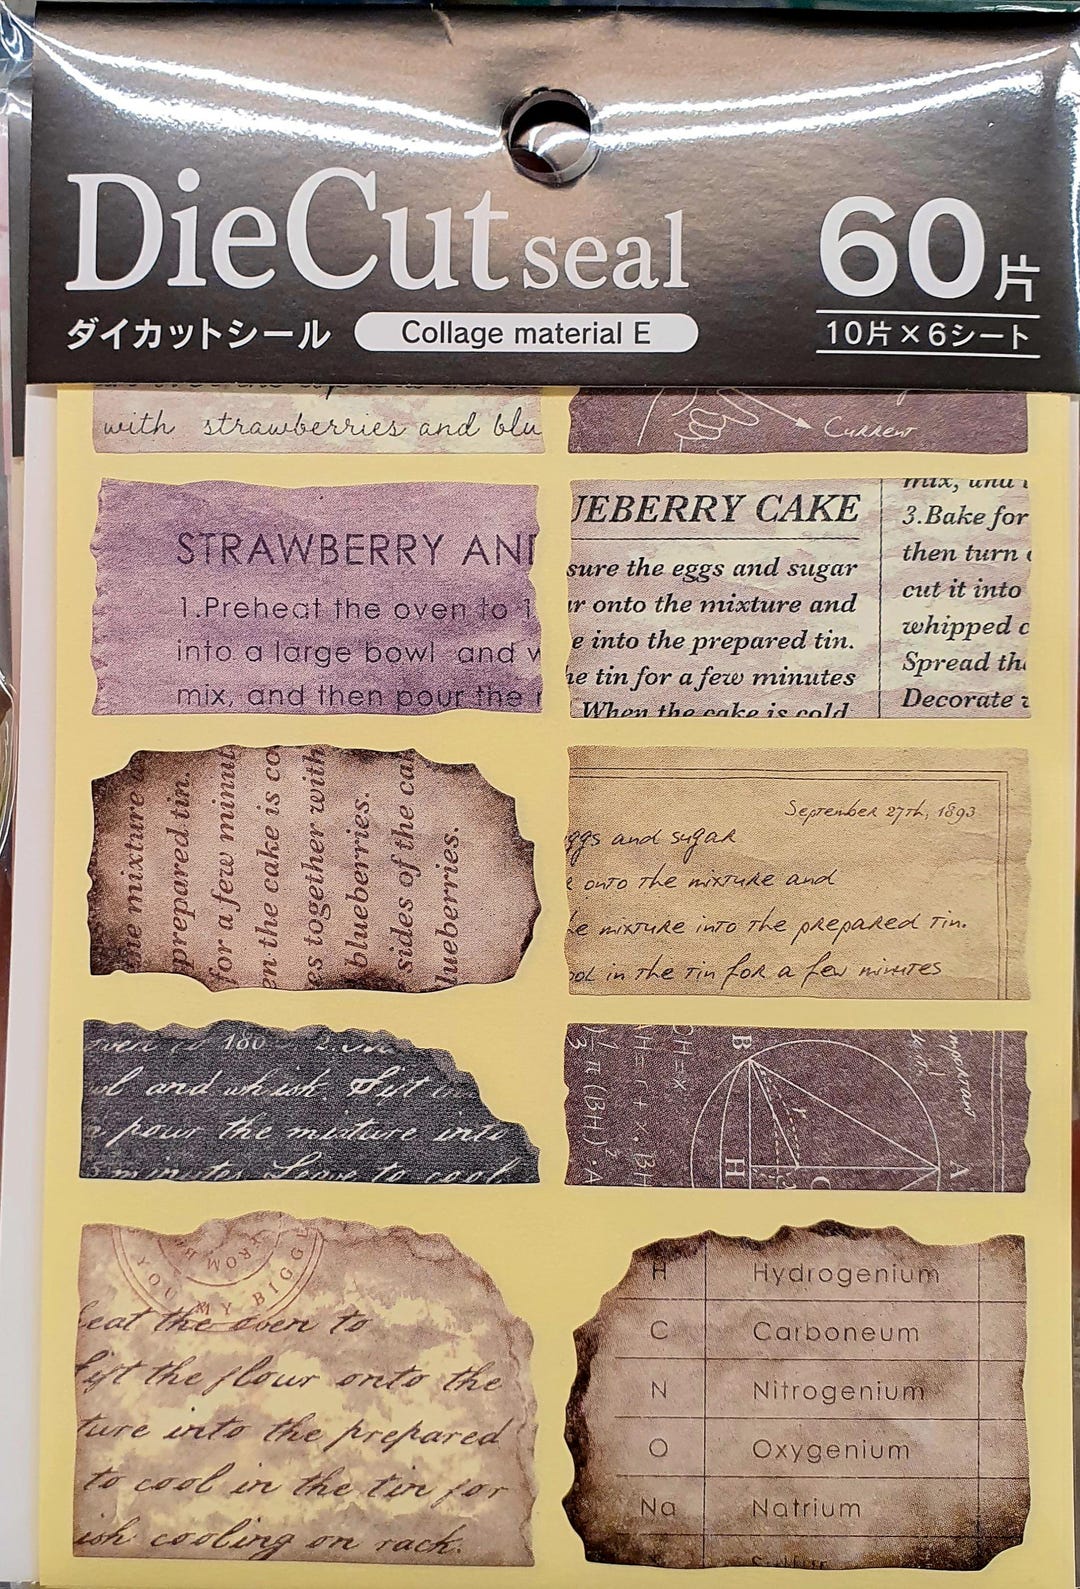 DieCut seal
60片
ダイカットシール
Collage material E
10片×6シート
with strawberries and blu
Current
STRAWBERRY AN
1.Preheat the oven to 1
into a large bowl and w
mix, and then pour the
UEBERRY CAKE
sure the eggs and sugar
ur onto the mixture and
e into the prepared tin.
he tin for a few minutes
When the cake is cold
mix, and
3.Bake for
then turn
cut it into
whipped c
Spread the
Decorate
the mixture
prepared tin.
for a few minut
en the cake is co
es together with
blueberries.
sides of the cak
lueberries.
September 27th, 1893
ggs and sugar
onto the mixture and
e mixture into the prepared tin.
ool in the tin for a few minutes
oven to 180 2.
wl and whisk. Sift
pour the mixture into
5 minutes. Leave to cool
Important
B
H=r+x, BH
H=x
1/3 π (BH)² · A
r
A
H
C
FROM
MY BIGGE
eat the oven to
Sift the flour onto the
ture into the prepared
to cool in the tin for
ish cooling on rack.
H Hydrogenium
C Carboneum
N Nitrogenium
O Oxygenium
Na Natrium
Sulfur